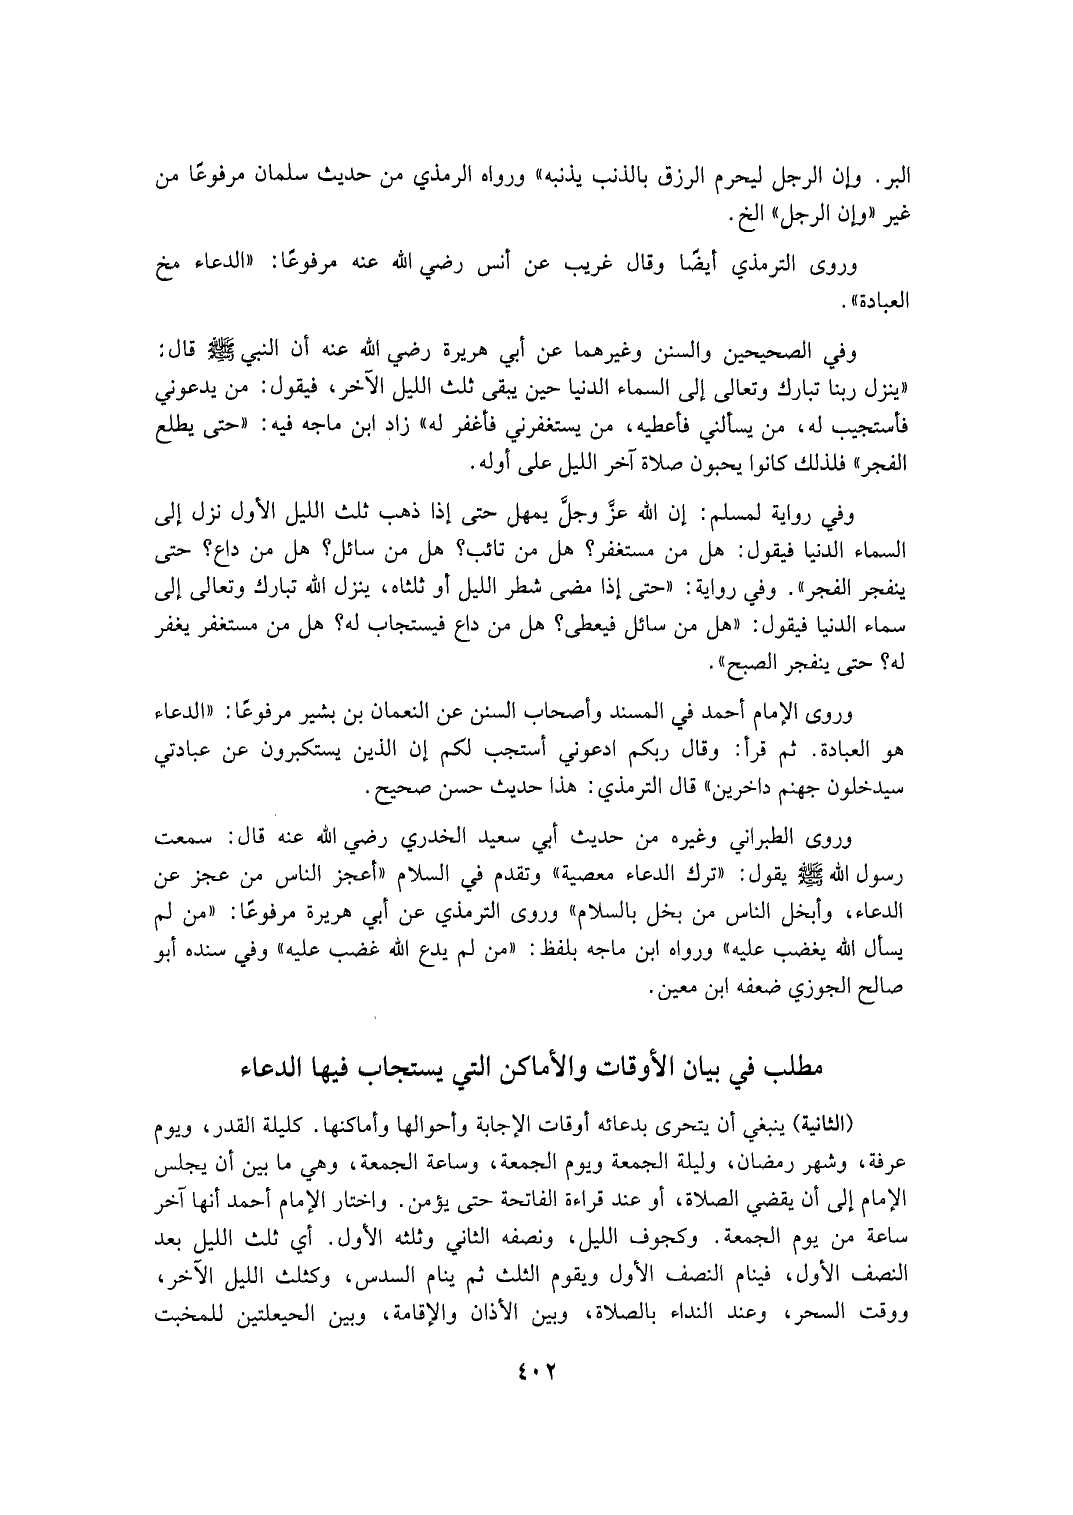 البر. وإن الرجل ليحرم الرزق بالذنب يذنبه» ورواه الرمذي من حديث سلمان مرفوعًا من
غير «وإن الرجل» الخ.
وروى الترمذي أيضًا وقال غريب عن أنس رضي الله عنه مرفوعًا: «الدعاء مخ
العبادة».
وفي الصحيحين والسنن وغيرهما عن أبي هريرة رضي الله عنه أن النبي ﷺ قال:
«ينزل ربنا تبارك وتعالى إلى السماء الدنيا حين يبقى ثلث الليل الآخر، فيقول: من يدعوني
فأستجيب له، من يسألني فأعطيه، من يستغفرني فأغفر له» زاد ابن ماجه فيه: «حتى يطلع
الفجر» فلذلك كانوا يحبون صلاة آخر الليل على أوله.
وفي رواية لمسلم: إن الله عزَّ وجلَّ يمهل حتى إذا ذهب ثلث الليل الأول نزل إلى
السماء الدنيا فيقول: هل من مستغفر؟ هل من تائب؟ هل من سائل؟ هل من داع؟ حتى
ينفجر الفجر». وفي رواية: «حتى إذا مضى شطر الليل أو ثلثاه، ينزل الله تبارك وتعالى إلى
سماء الدنيا فيقول: «هل من سائل فيعطى؟ هل من داع فيستجاب له؟ هل من مستغفر يغفر
له؟ حتى ينفجر الصبح».
وروى الإمام أحمد في المسند وأصحاب السنن عن النعمان بن بشير مرفوعًا: «الدعاء
هو العبادة. ثم قرأ: وقال ربكم ادعوني أستجب لكم إن الذين يستكبرون عن عبادتي
سيدخلون جهنم داخرين» قال الترمذي: هذا حديث حسن صحيح.
وروى الطبراني وغيره من حديث أبي سعيد الخدري رضي الله عنه قال: سمعت
رسول الله ﷺ يقول: «ترك الدعاء معصية» وتقدم في السلام «أعجز الناس من عجز عن
الدعاء، وأبخل الناس من بخل بالسلام» وروى الترمذي عن أبي هريرة مرفوعًا: «من لم
يسأل الله يغضب عليه» ورواه ابن ماجه بلفظ: «من لم يدع الله غضب عليه» وفي سنده أبو
صالح الجوزي ضعفه ابن معين.
مطلب في بيان الأوقات والأماكن التي يستجاب فيها الدعاء
(الثانية) ينبغي أن يتحرى بدعائه أوقات الإجابة وأحوالها وأماكنها. كليلة القدر، ويوم
عرفة، وشهر رمضان، وليلة الجمعة ويوم الجمعة، وساعة الجمعة، وهي ما بين أن يجلس
الإمام إلى أن يقضي الصلاة، أو عند قراءة الفاتحة حتى يؤمن. واختار الإمام أحمد أنها آخر
ساعة من يوم الجمعة. وكجوف الليل، ونصفه الثاني وثلثه الأول. أي ثلث الليل بعد
النصف الأول، فينام النصف الأول ويقوم الثلث ثم ينام السدس، وكثلث الليل الآخر،
ووقت السحر، وعند النداء بالصلاة، وبين الأذان والإقامة، وبين الحيعلتين للمخبت
٤٠٢